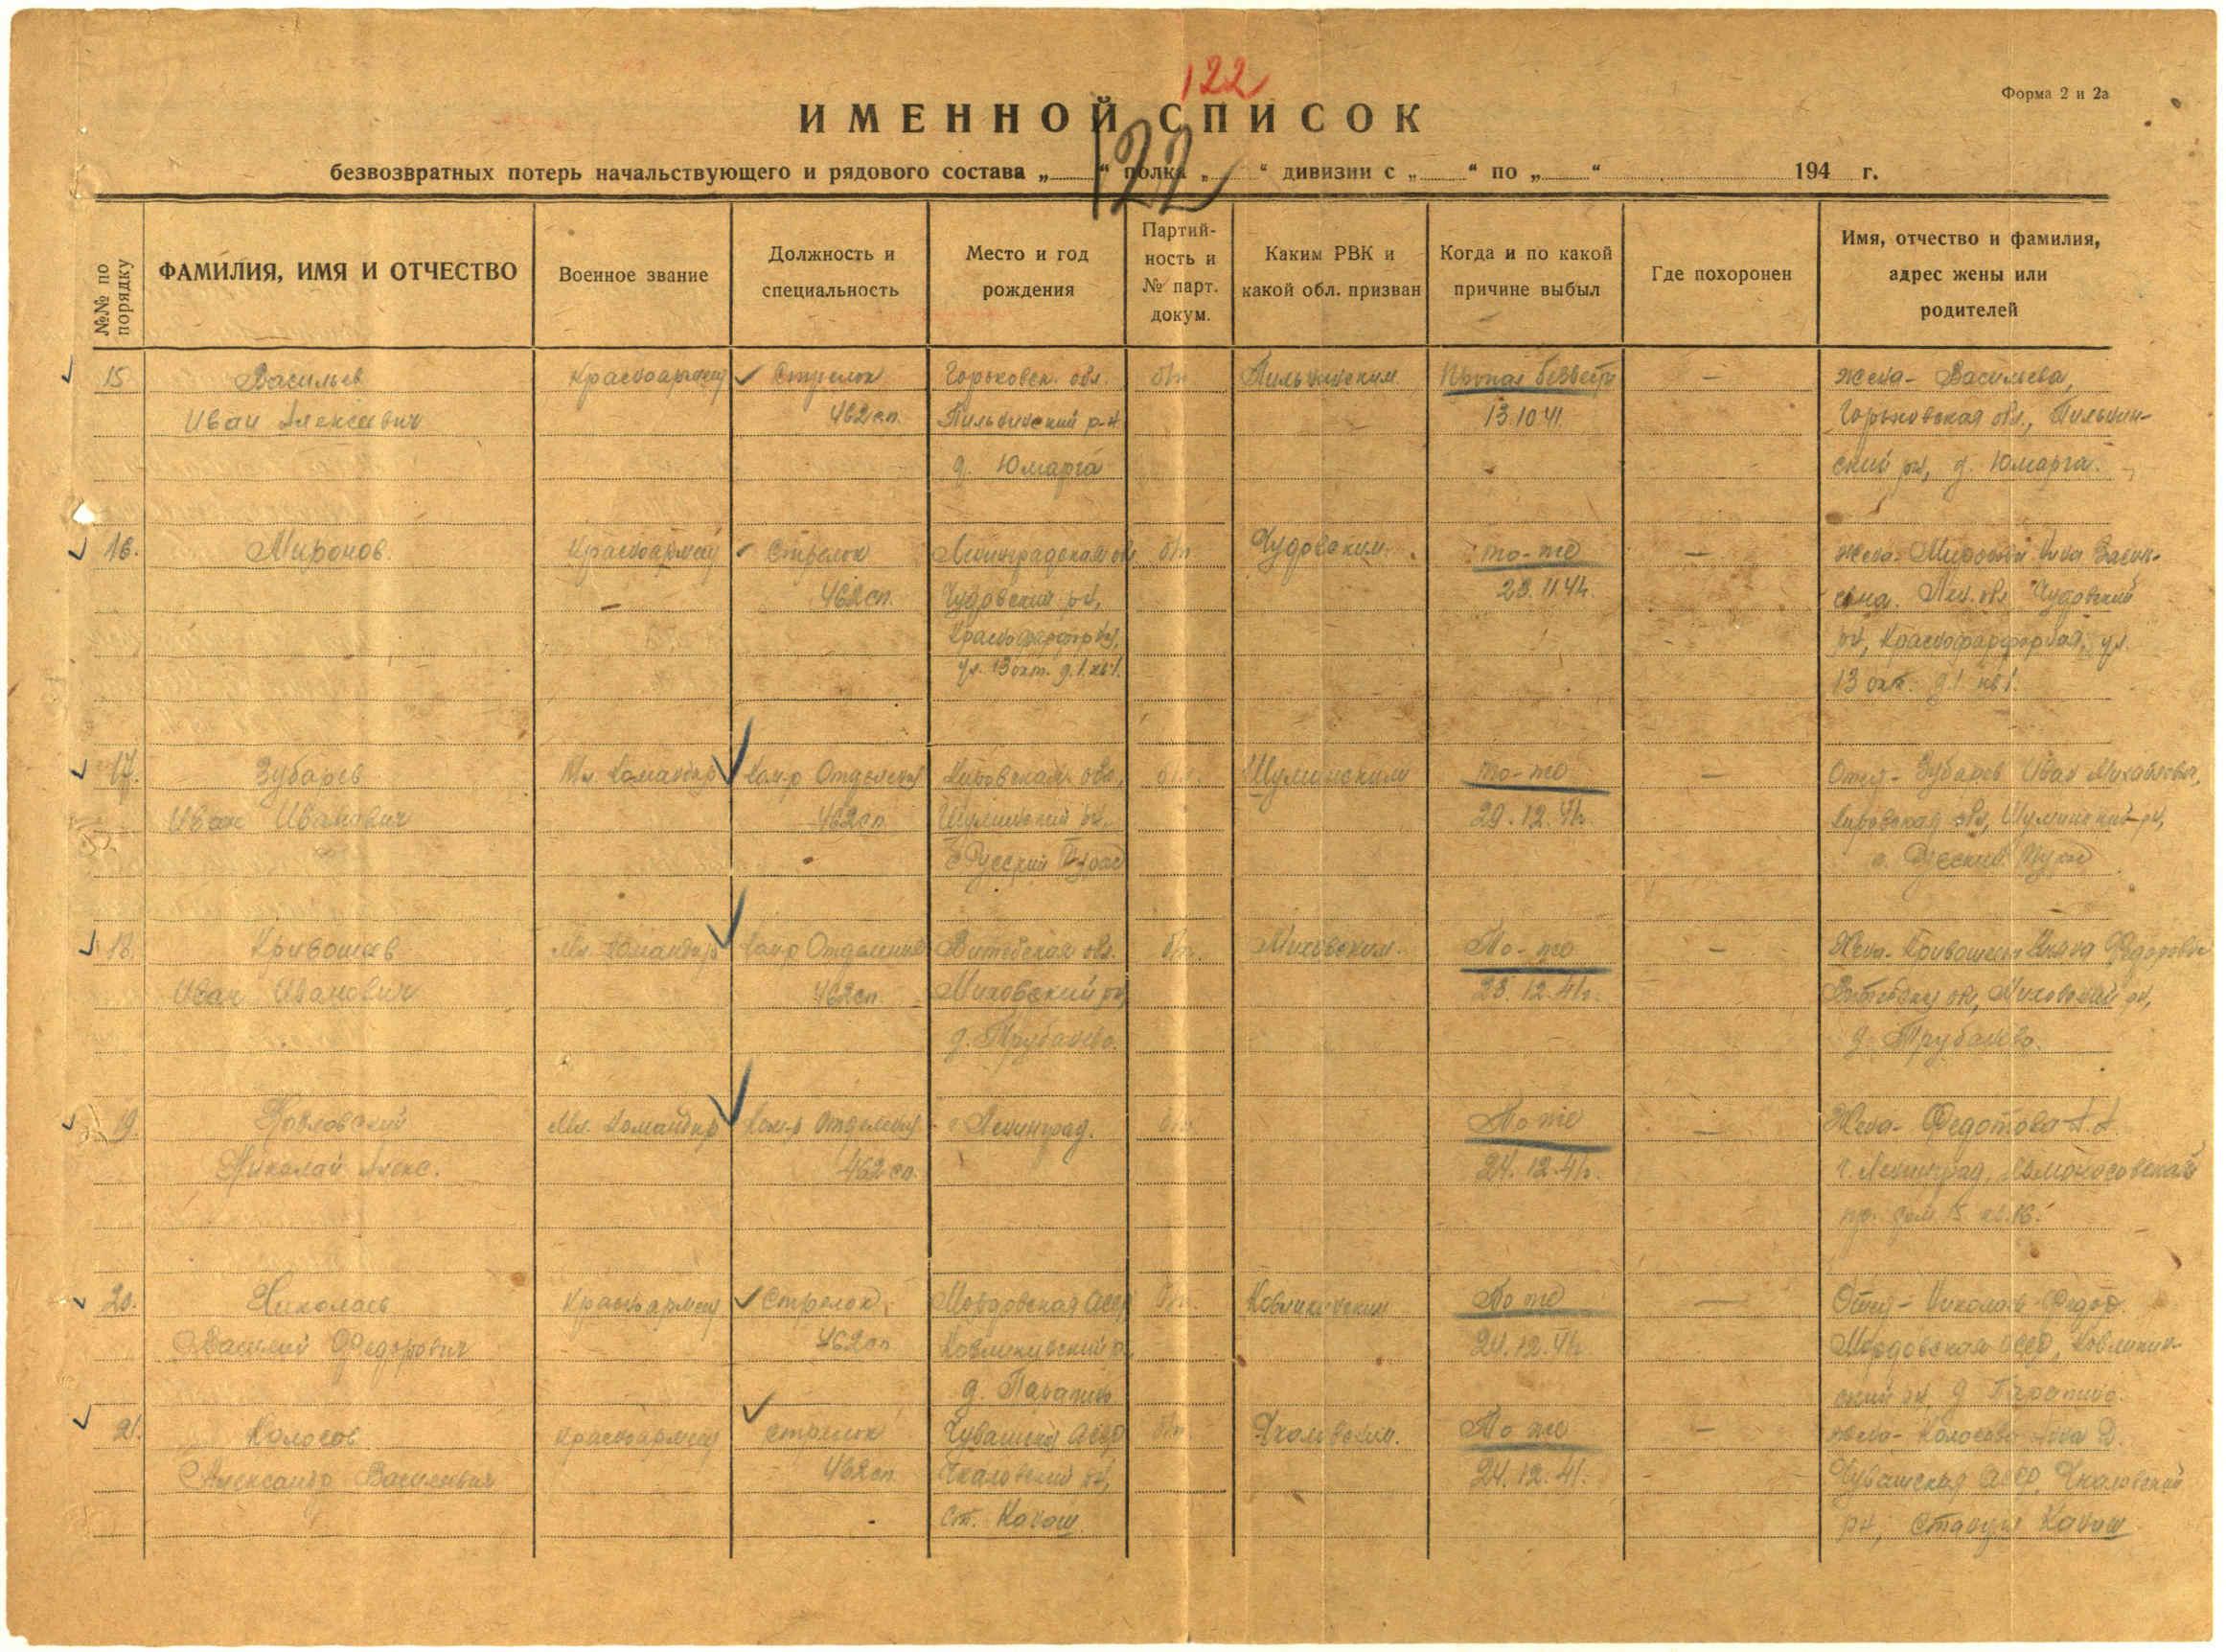 122
Форма 2 и 2а
ИМЕННОЙ СПИСОК
122
безвозвратных потерь начальствующего и рядового состава „ “ полка „ “ дивизии с „ “ по „ “ 194 г.
№№ по порядку
ФАМИЛИЯ, ИМЯ И ОТЧЕСТВО
Военное звание
Должность и
специальность
Место и год
рождения
Партий-
ность и
№ парт.
докум.
Каким РВК и
какой обл. призван
Когда и по какой
причине выбыл
Где похоронен
Имя, отчество и фамилия,
адрес жены или
родителей
15 Васильев Красноармеец Стрелок Горьковск. обл. б/п Пильнинским Пропал безвести — жена - Васильева,
Иван Алексеевич 462 сп. Пильнинский р-н 13.10.41 Горьковская обл., Пильнин-
д. Юмарга ский рн, д. Юмарга.
16. Миронов. Красноармеец Стрелок Ленинградская обл б/п Чудовским. то-же — жена-
462 сп. Чудовский рн, 23.11.41г. Лен. обл Чудовский
рн, Краснофарфорная, ул.
ул. 13 окт. д.1. кв 1. 13 окт. д 1 кв 1.
17. Зубарев Мл. Командир Ком-р Отделения Кировская обл, б/п. то-же — Отец - Зубарев Иван Михайлович,
Иван Иванович 462 сп 29.12.41г. Кировская обл, рн,
Русский Русский
18. Кривошеев Мл. Командир Ком-р Отделения Витебская обл. б/п. Миховским. То-же — Жена - Федоровна
Иван Иванович 462 сп. Миховский рн 23.12.41г. обл, Миховский рн,
д. Трубачево. д. Трубачево.
19. Козловский Мл. Командир Ком-р Отделения г. Ленинград. б/п То же — Жена - Федотова А.А.
Николай Алекс. 462 сп. 24.12.41г. г. Ленинград, Ломоносовский
пр. дом 15 кв.16.
20. Николаев Красноармеец Стрелок Мордовская АССР б/п. То же — Отец - Николаев Федор.
Василий Федорович 462 сп 24.12.41г. Мордовская АССР,
д. ский рн, д
21. Колосов Красноармеец Стрелок Чувашск АССР б/п. То же — жена - Колосова
Александр Васильевич 462 сп. Чкаловский рн, 24.12.41. Чувашская АССР, Чкаловский
ст. Канаш рн, Станция Канаш